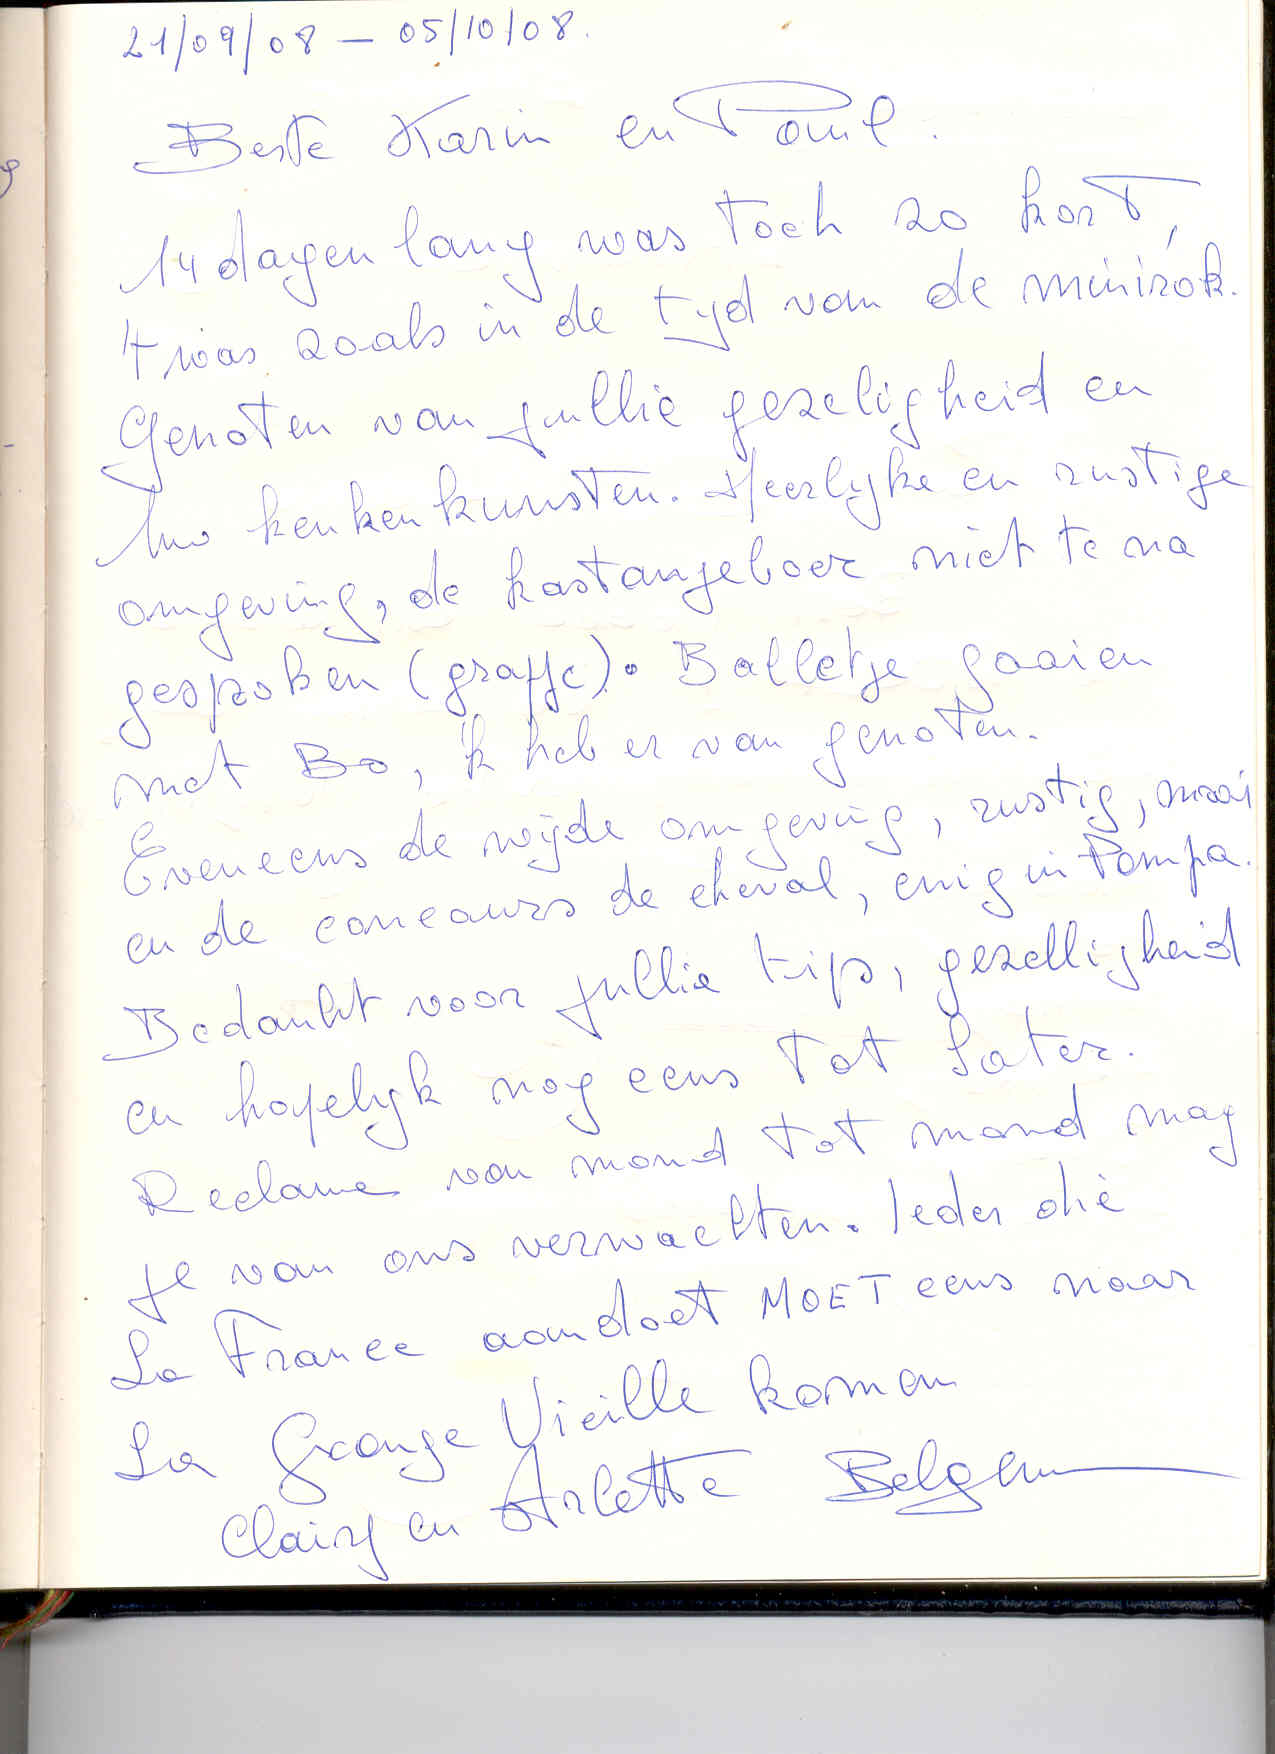 21/09/08 – 05/10/08.
Beste Karin en Poul.
14 dagen lang was toch zo kort,
't was zoals in de tyd van de minirok.
Genoten van jullie gezeligheid en
kenkenkunsten. Heerlyke en rustige
omgeving, de kastanjeboer niet te na
gesproken (grapje). Balletje gooien
met Bo, 'k heb er van genoten.
Eveneens de wijde omgeving, rustig, mooi
en de concours de cheval, enig in Pompa.
Bedankt voor jullie tips, gezelligheid
en hopelyk nog eens tot later.
Reclame van mond tot mond mag
je van ons verwachten. Ieder die
La France aandoet MOET eens naar
La Grange Vieille komen
Clairy en Arlette Belgen